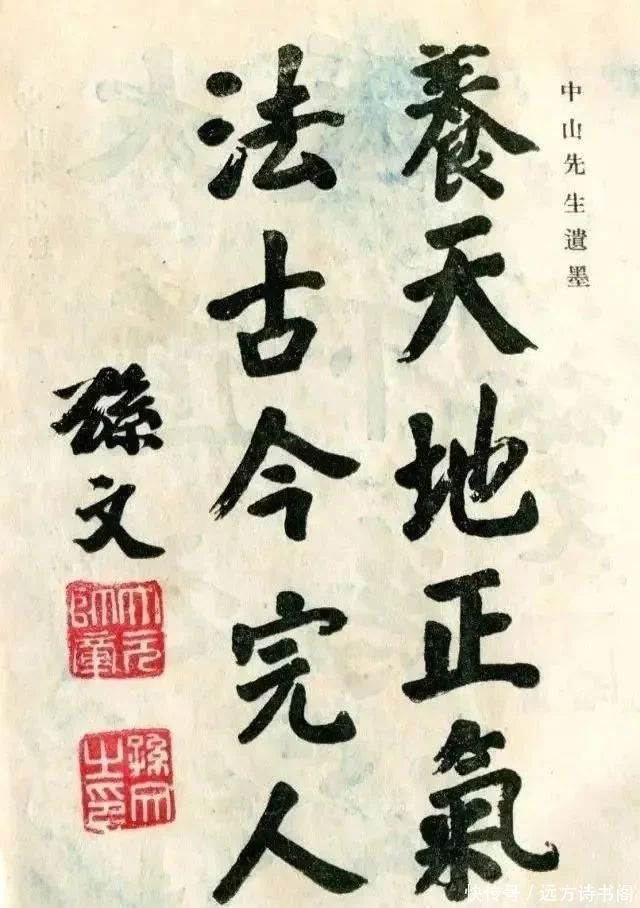 中山先生遺墨
養天地正氣
法古今完人
孫文
大元帥章
孫文之印
快传号／远方诗书阁